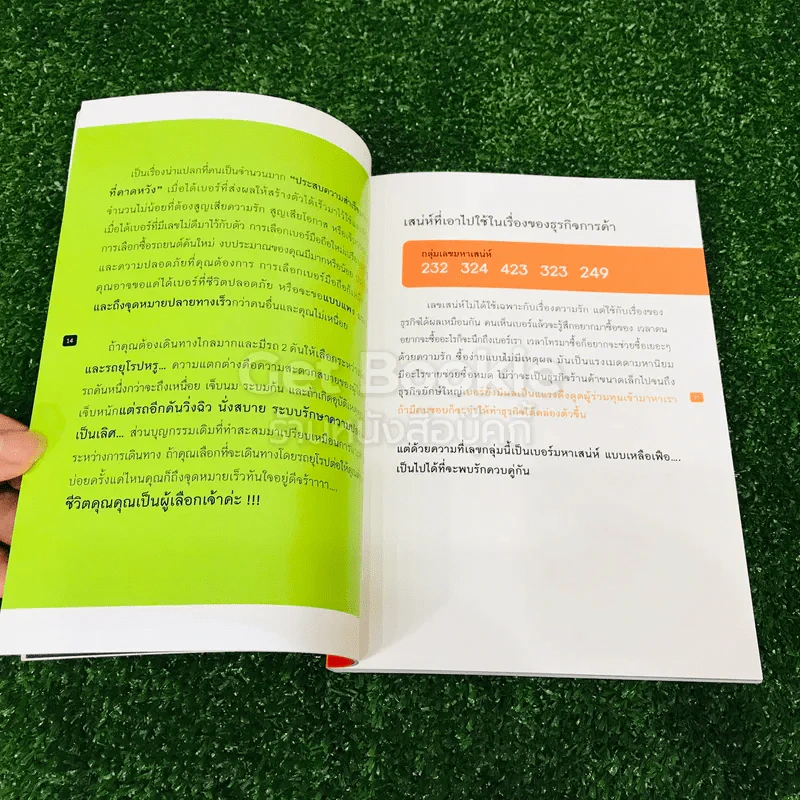 เป็นเรื่องน่าแปลกที่คนเป็นจำนวนมาก "ประสบความสำเร็จ
ที่คาดหวัง" เมื่อได้เบอร์ที่ส่งผลให้สร้างตัวได้เร็วมาไว้ใช้
จำนวนไม่น้อยที่ต้องสูญเสียความรัก สูญเสียโอกาส หรือ
เมื่อได้เบอร์ที่มีเลขไม่ดีมาไว้กับตัว การเลือกเบอร์มือถือใหม่
การเลือกซื้อรถยนต์คันใหม่ งบประมาณของคุณมีมากหรือน้อย
และความปลอดภัยที่คุณต้องการ การเลือกเบอร์มือถือก็
คุณอาจขอแค่ได้เบอร์ที่ชีวิตปลอดภัย หรือจะขอแบบแพง
และถึงจุดหมายปลายทางเร็วกว่าคนอื่นและคุณไม่เหนื่อย
14
ถ้าคุณต้องเดินทางไกลมากและมีรถ 2 คันให้เลือกระหว่าง
และรถยุโรปหรู... ความแตกต่างคือความสะดวกสบายของ
รถคันหนึ่งกว่าจะถึงเหนื่อย เจ็บนม ระบมก้น และถ้าเกิดอุบัติเหตุ
เจ็บหนักแต่รถอีกคันวิ่งฉิว นั่งสบาย ระบบรักษาความ
เป็นเลิศ... ส่วนบุญกรรมเดิมที่ทำสะสมมาเปรียบเหมือนการ
ระหว่างการเดินทาง ถ้าคุณเลือกที่จะเดินทางโดยรถยุโรปต่อให้
บ่อยครั้งแค่ไหนคุณก็ถึงจุดหมายเร็วทันใจอยู่ดีจร้าาาา....
ชีวิตคุณคุณเป็นผู้เลือกเจ้าค่ะ !!!
เสน่ห์ที่เอาไปใช้ในเรื่องของธุรกิจการค้า
กลุ่มเลขมหาเสน่ห์
232 324 423 323 249
เลขเสน่ห์ไม่ได้ใช้เฉพาะกับเรื่องความรัก แต่ใช้กับเรื่องของ
ธุรกิจได้ผลเหมือนกัน คนเห็นเบอร์แล้วจะรู้สึกอยากมาซื้อของ เวลาคน
อยากจะซื้ออะไรก็จะนึกถึงเบอร์เรา เวลาโทรมาซื้อก็อยากจะช่วยซื้อเยอะๆ
ด้วยความรัก ซื้อง่ายแบบไม่มีเหตุผล มันเป็นแรงเมตตามหานิยม
มีอะไรขายช่วยซื้อหมด ไม่ว่าจะเป็นธุรกิจร้านค้าขนาดเล็กไปจนถึง
ธุรกิจยักษ์ใหญ่เบอร์ถ้ามีผลเป็นแรงดึงดูดผู้ร่วมทุนเข้ามาหาเรา
ถ้ามีคนชอบก็จะทำให้ทำธุรกิจได้คล่องตัวขึ้น
แต่ด้วยความที่เลขกลุ่มนี้เป็นเบอร์มหาเสน่ห์ แบบเหลือเฟือ....
เป็นไปได้ที่จะพบรักควบคู่กัน
Get Bookie
รวมหนังสือบุคกี้